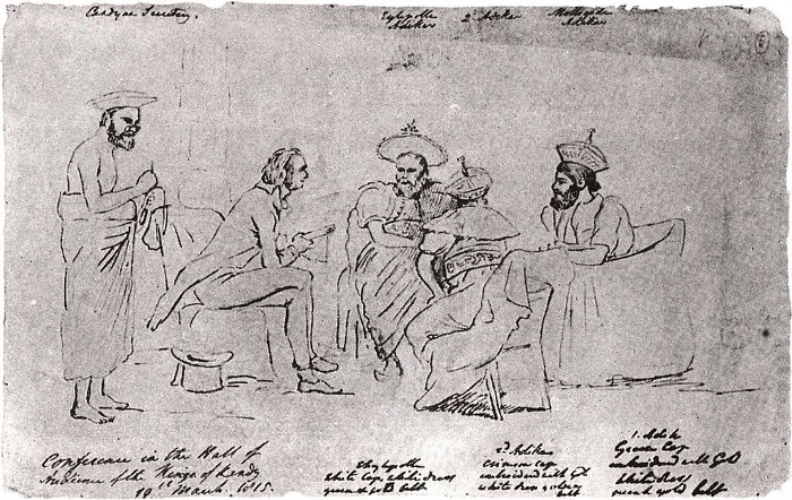 Kandyan Secretary.
Eylepolle
Adikar
2d Adikar
Mollegodde
Adikar
6
Conference in the Hall of
Audience of the Kings of Kandy
1815.
March
Eheylepolle
white Cap white dress
green & gold belt
2d Adikar
Crimson Cap
embroidered with Gold
white dress
belt
1. Adik
Green Cap
embroidered with Gold
White dress
green & gold belt